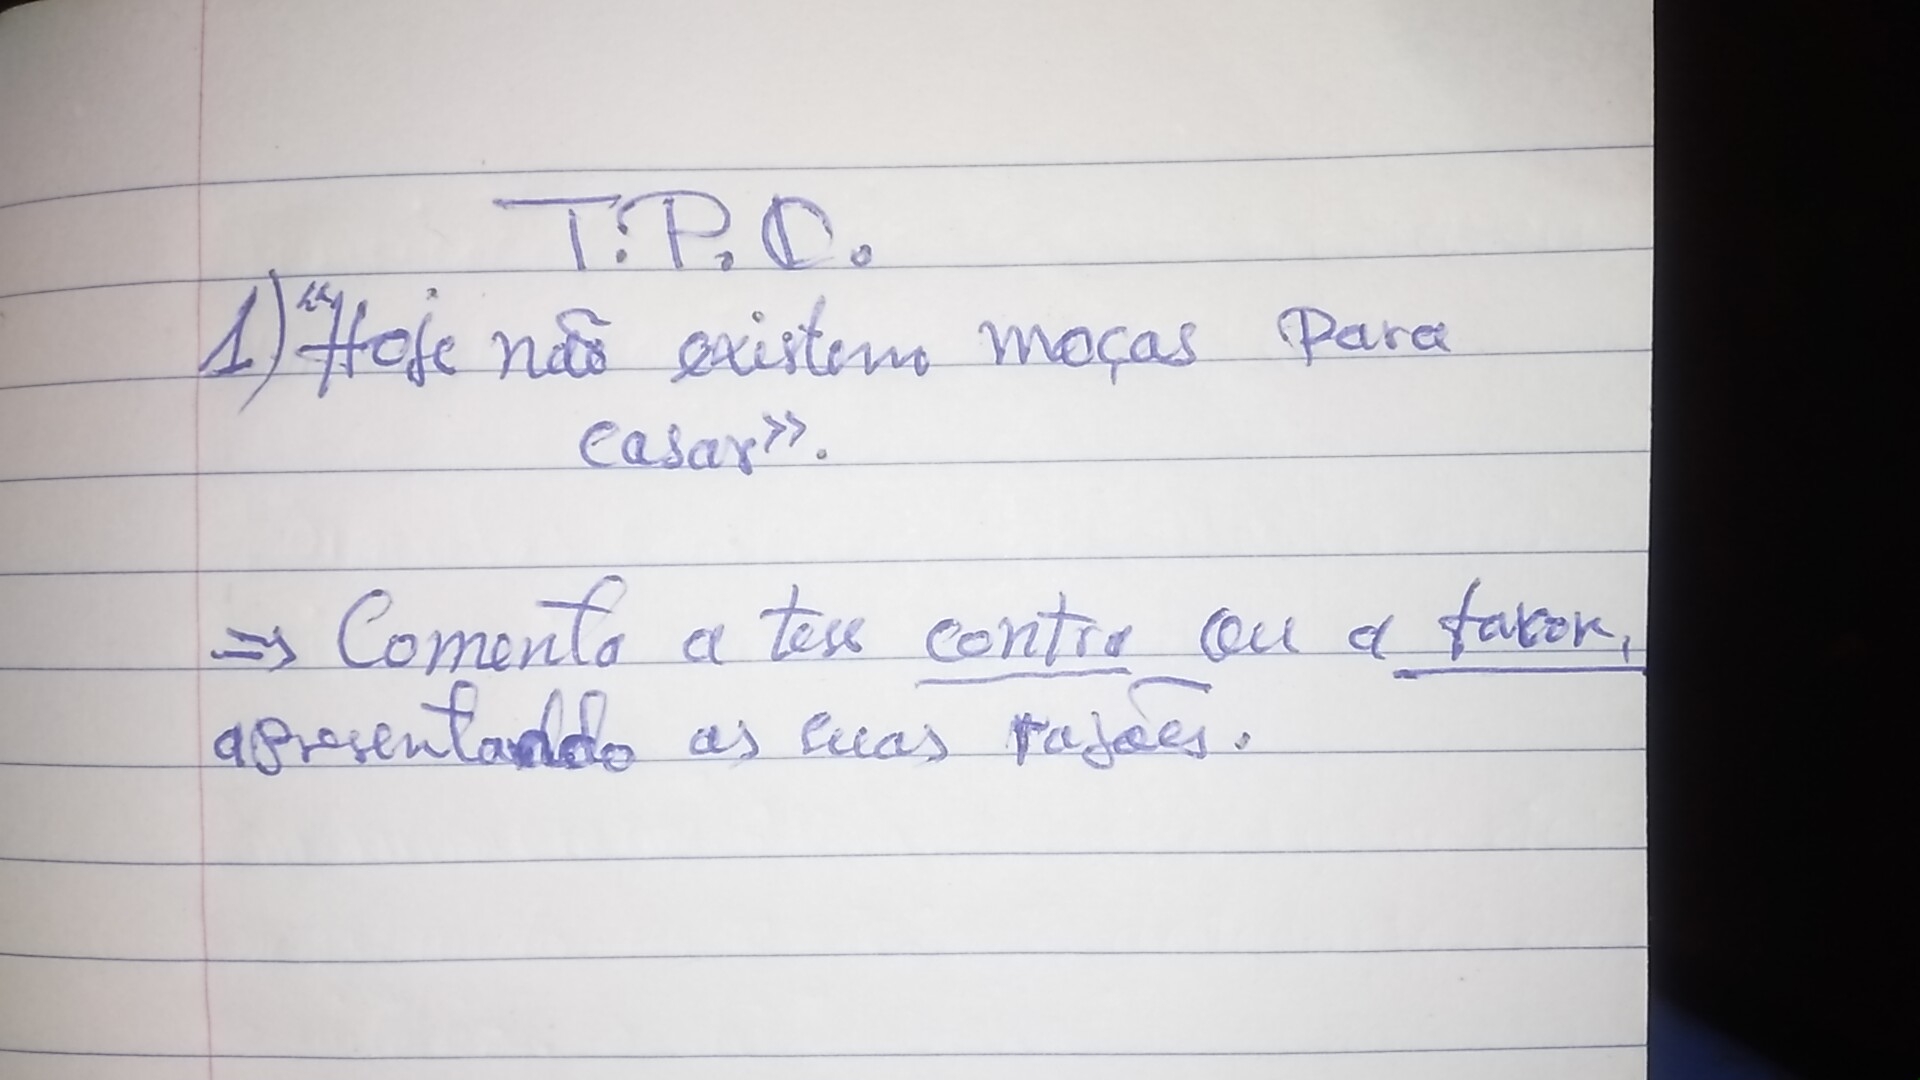 T.P.C.
1) "Hoje não existem moças para
casar».
=> Comenta a tese contra ou a favor,
apresentando as suas razões.